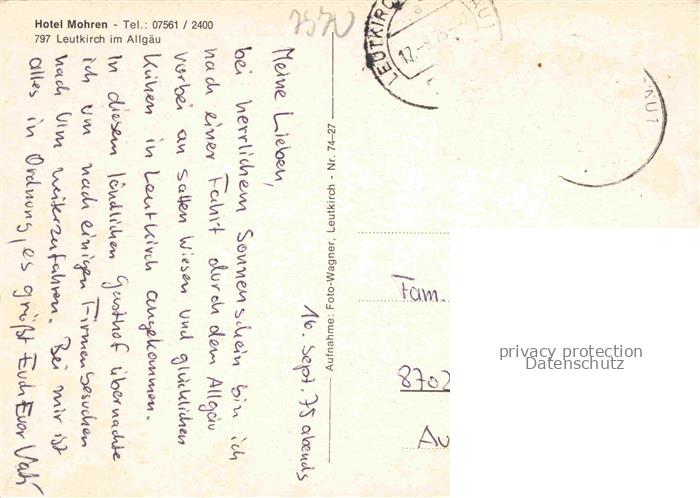 Hotel Mohren - Tel.: 07561 / 2400
797 Leutkirch im Allgäu
7570
16. Sept. 75 abends
Meine Lieben,
bei herrlichem Sonnenschein bin ich
nach einer Fahrt durch den Allgäu
vorbei an satten Wiesen und glücklichen
Kühen in Leutkirch angekommen.
In diesem ländlichen Gasthof übernachte
ich um nach einigen Firmenbesuchen
nach Ulm weiterzufahren. Bei mir ist
alles in Ordnung, es grüßt Euch Euer Vati
Aufnahme: Foto-Wagner, Leutkirch - Nr. 74-27
LEUTKIRCH
Fam.
8702
privacy protection
Datenschutz